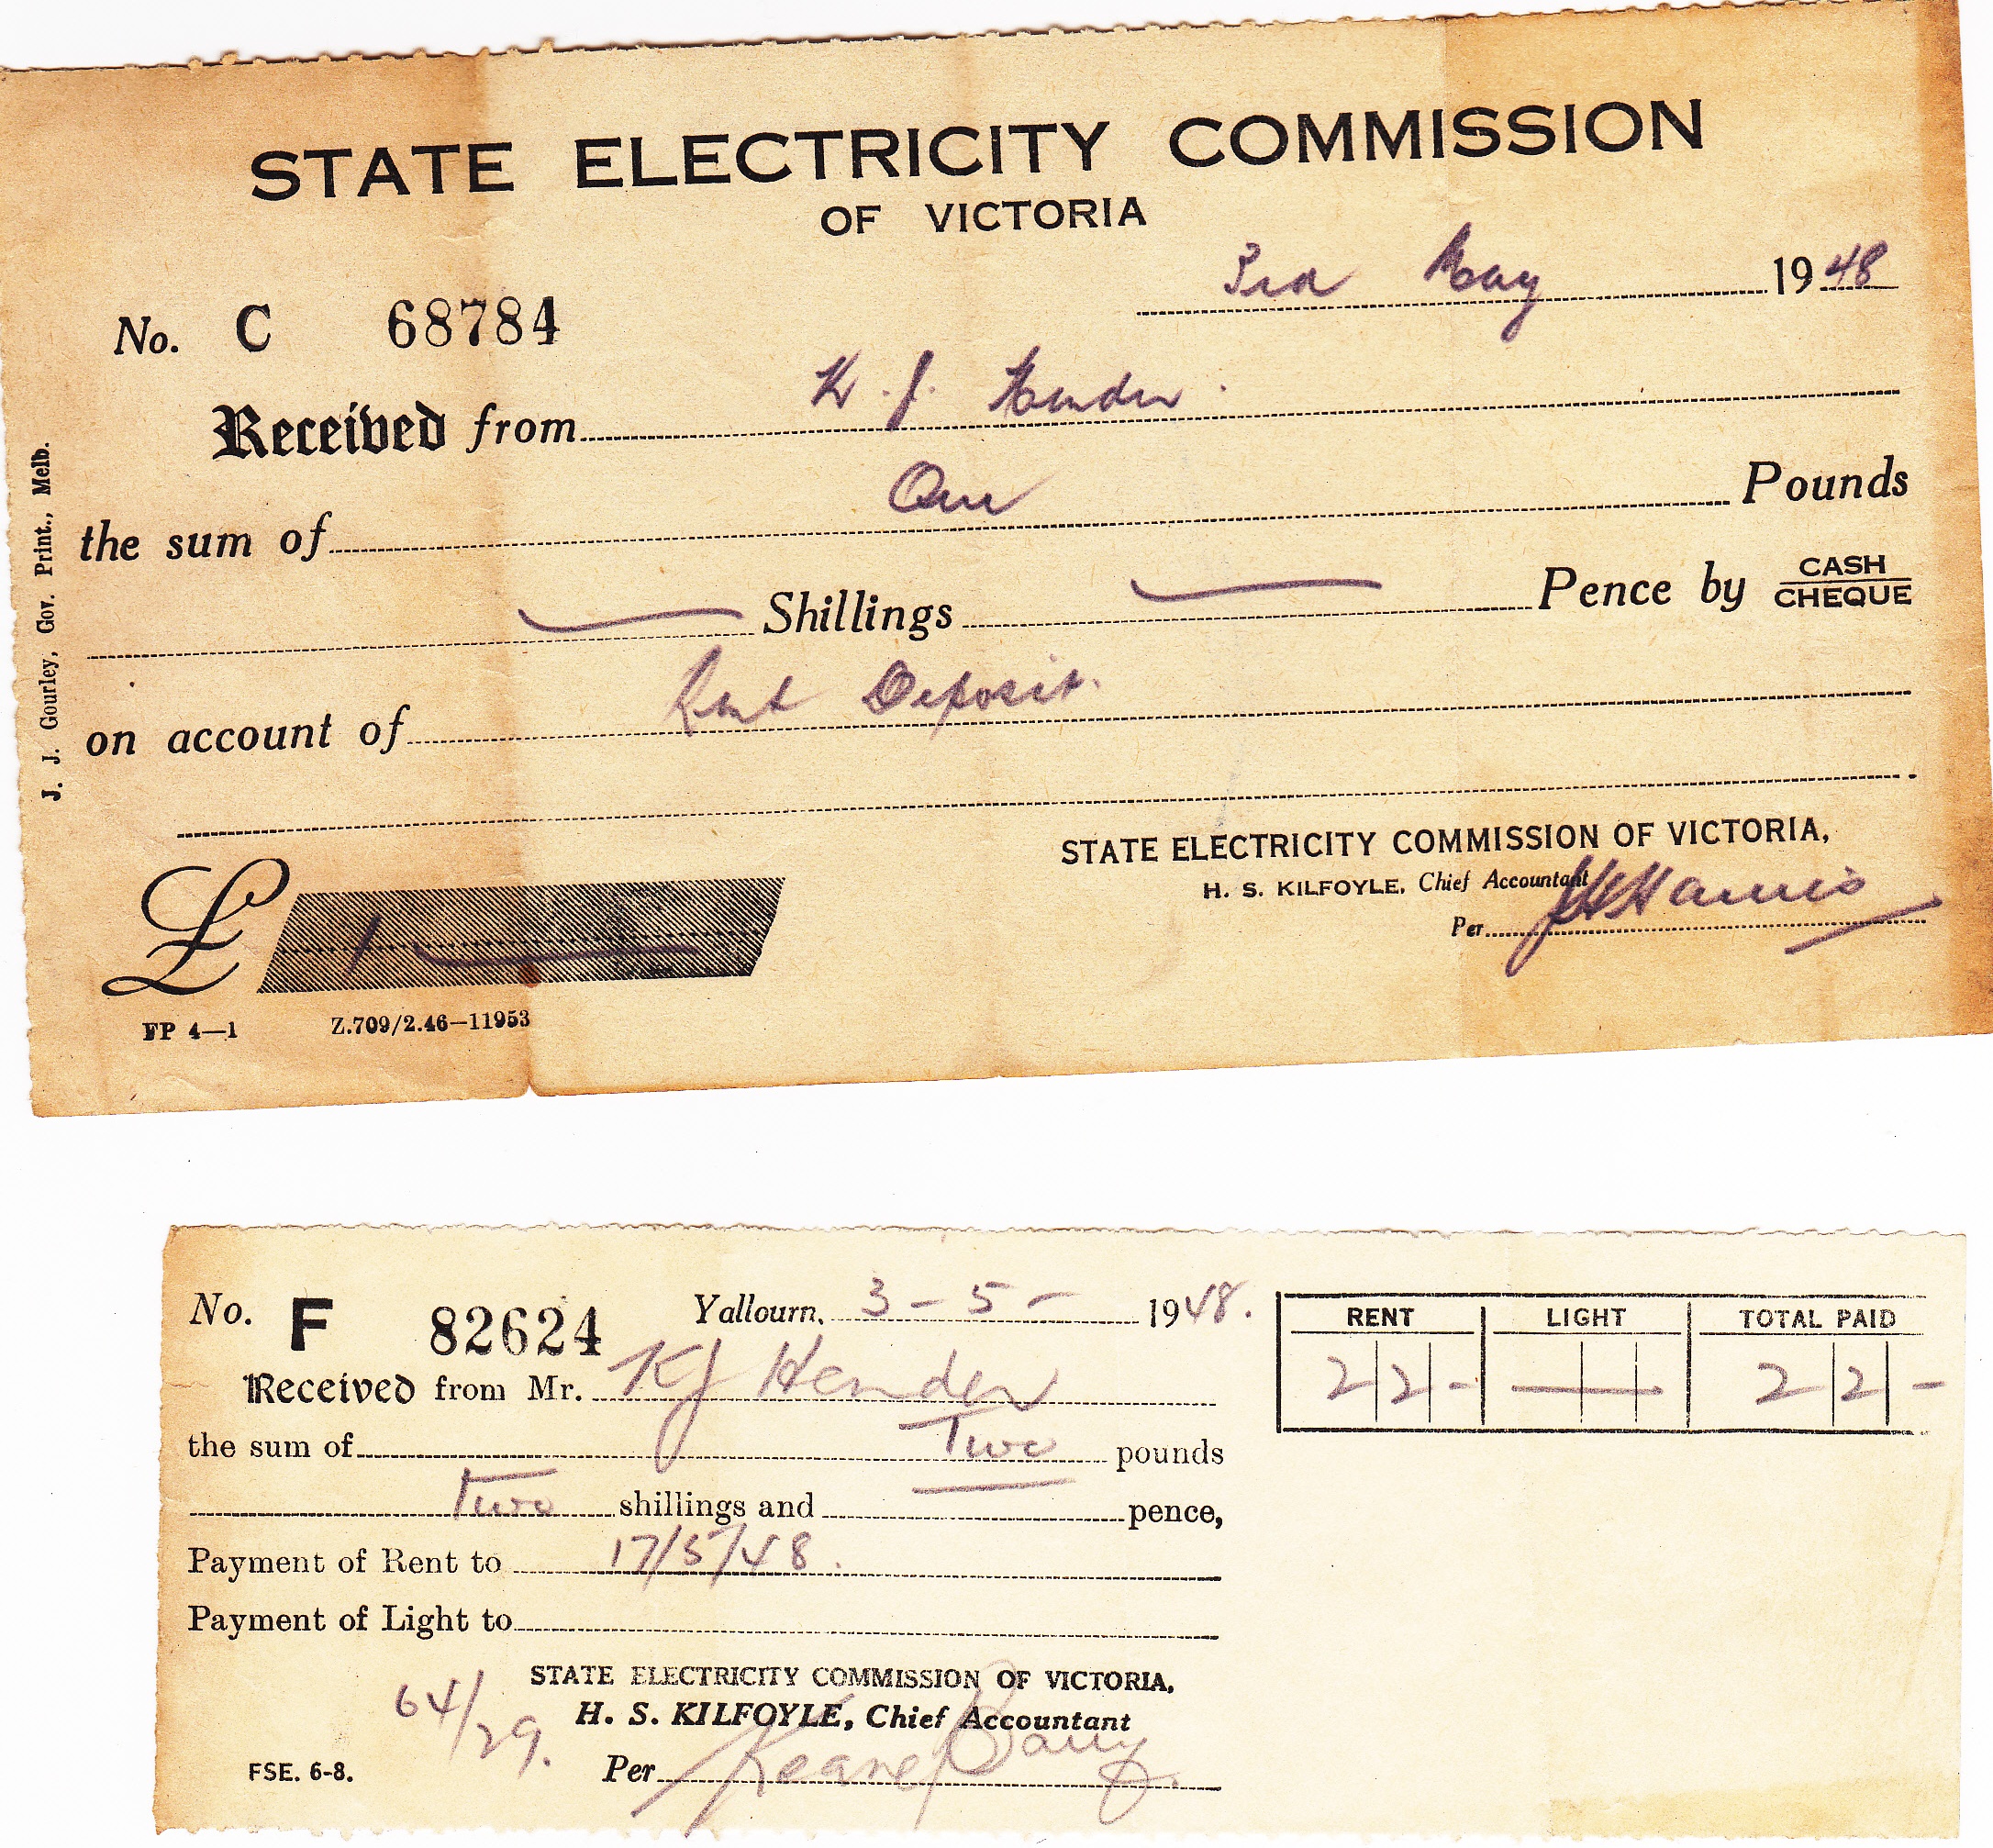 STATE ELECTRICITY COMMISSION
OF VICTORIA
3rd May 1948
No. C 68784
Received from K. J. Hender.
the sum of One Pounds
— Shillings — Pence by CASH
CHEQUE
on account of Rent Deposit.
STATE ELECTRICITY COMMISSION OF VICTORIA,
H. S. KILFOYLE, Chief Accountant
Per Harris
£ 1 —
FP 4—1 Z.709/2.46—11953
J. J. Gourley, Gov. Print., Melb.
No. F 82624 Yallourn, 3 - 5 - 1948.
RENT LIGHT TOTAL PAID
2 2 - — 2 2 -
Received from Mr. KJ Hender
the sum of Two pounds
Two shillings and — pence,
Payment of Rent to 17/5/48.
Payment of Light to
STATE ELECTRICITY COMMISSION OF VICTORIA,
H. S. KILFOYLE, Chief Accountant
64/29.
FSE. 6-8. Per